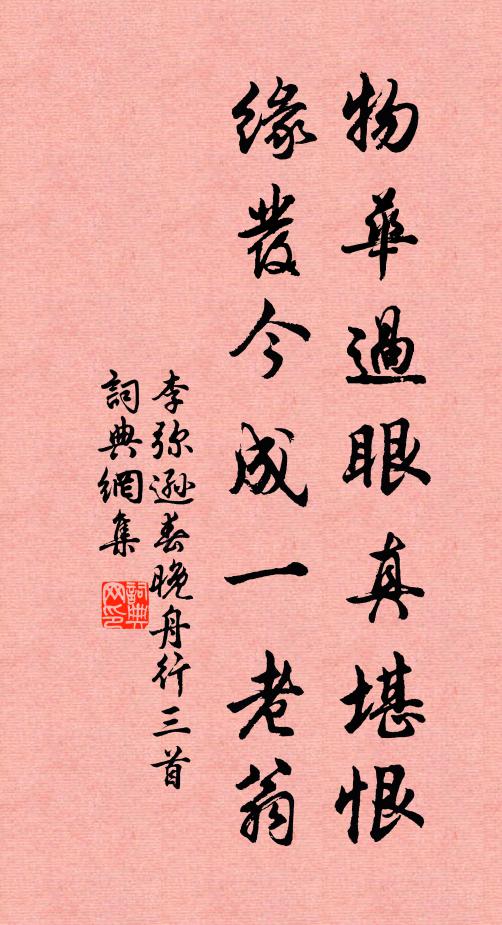 物華過眼真堪恨
緣發今成一老翁
李弥遜春晚舟行三首
詞典網集
詞典网印